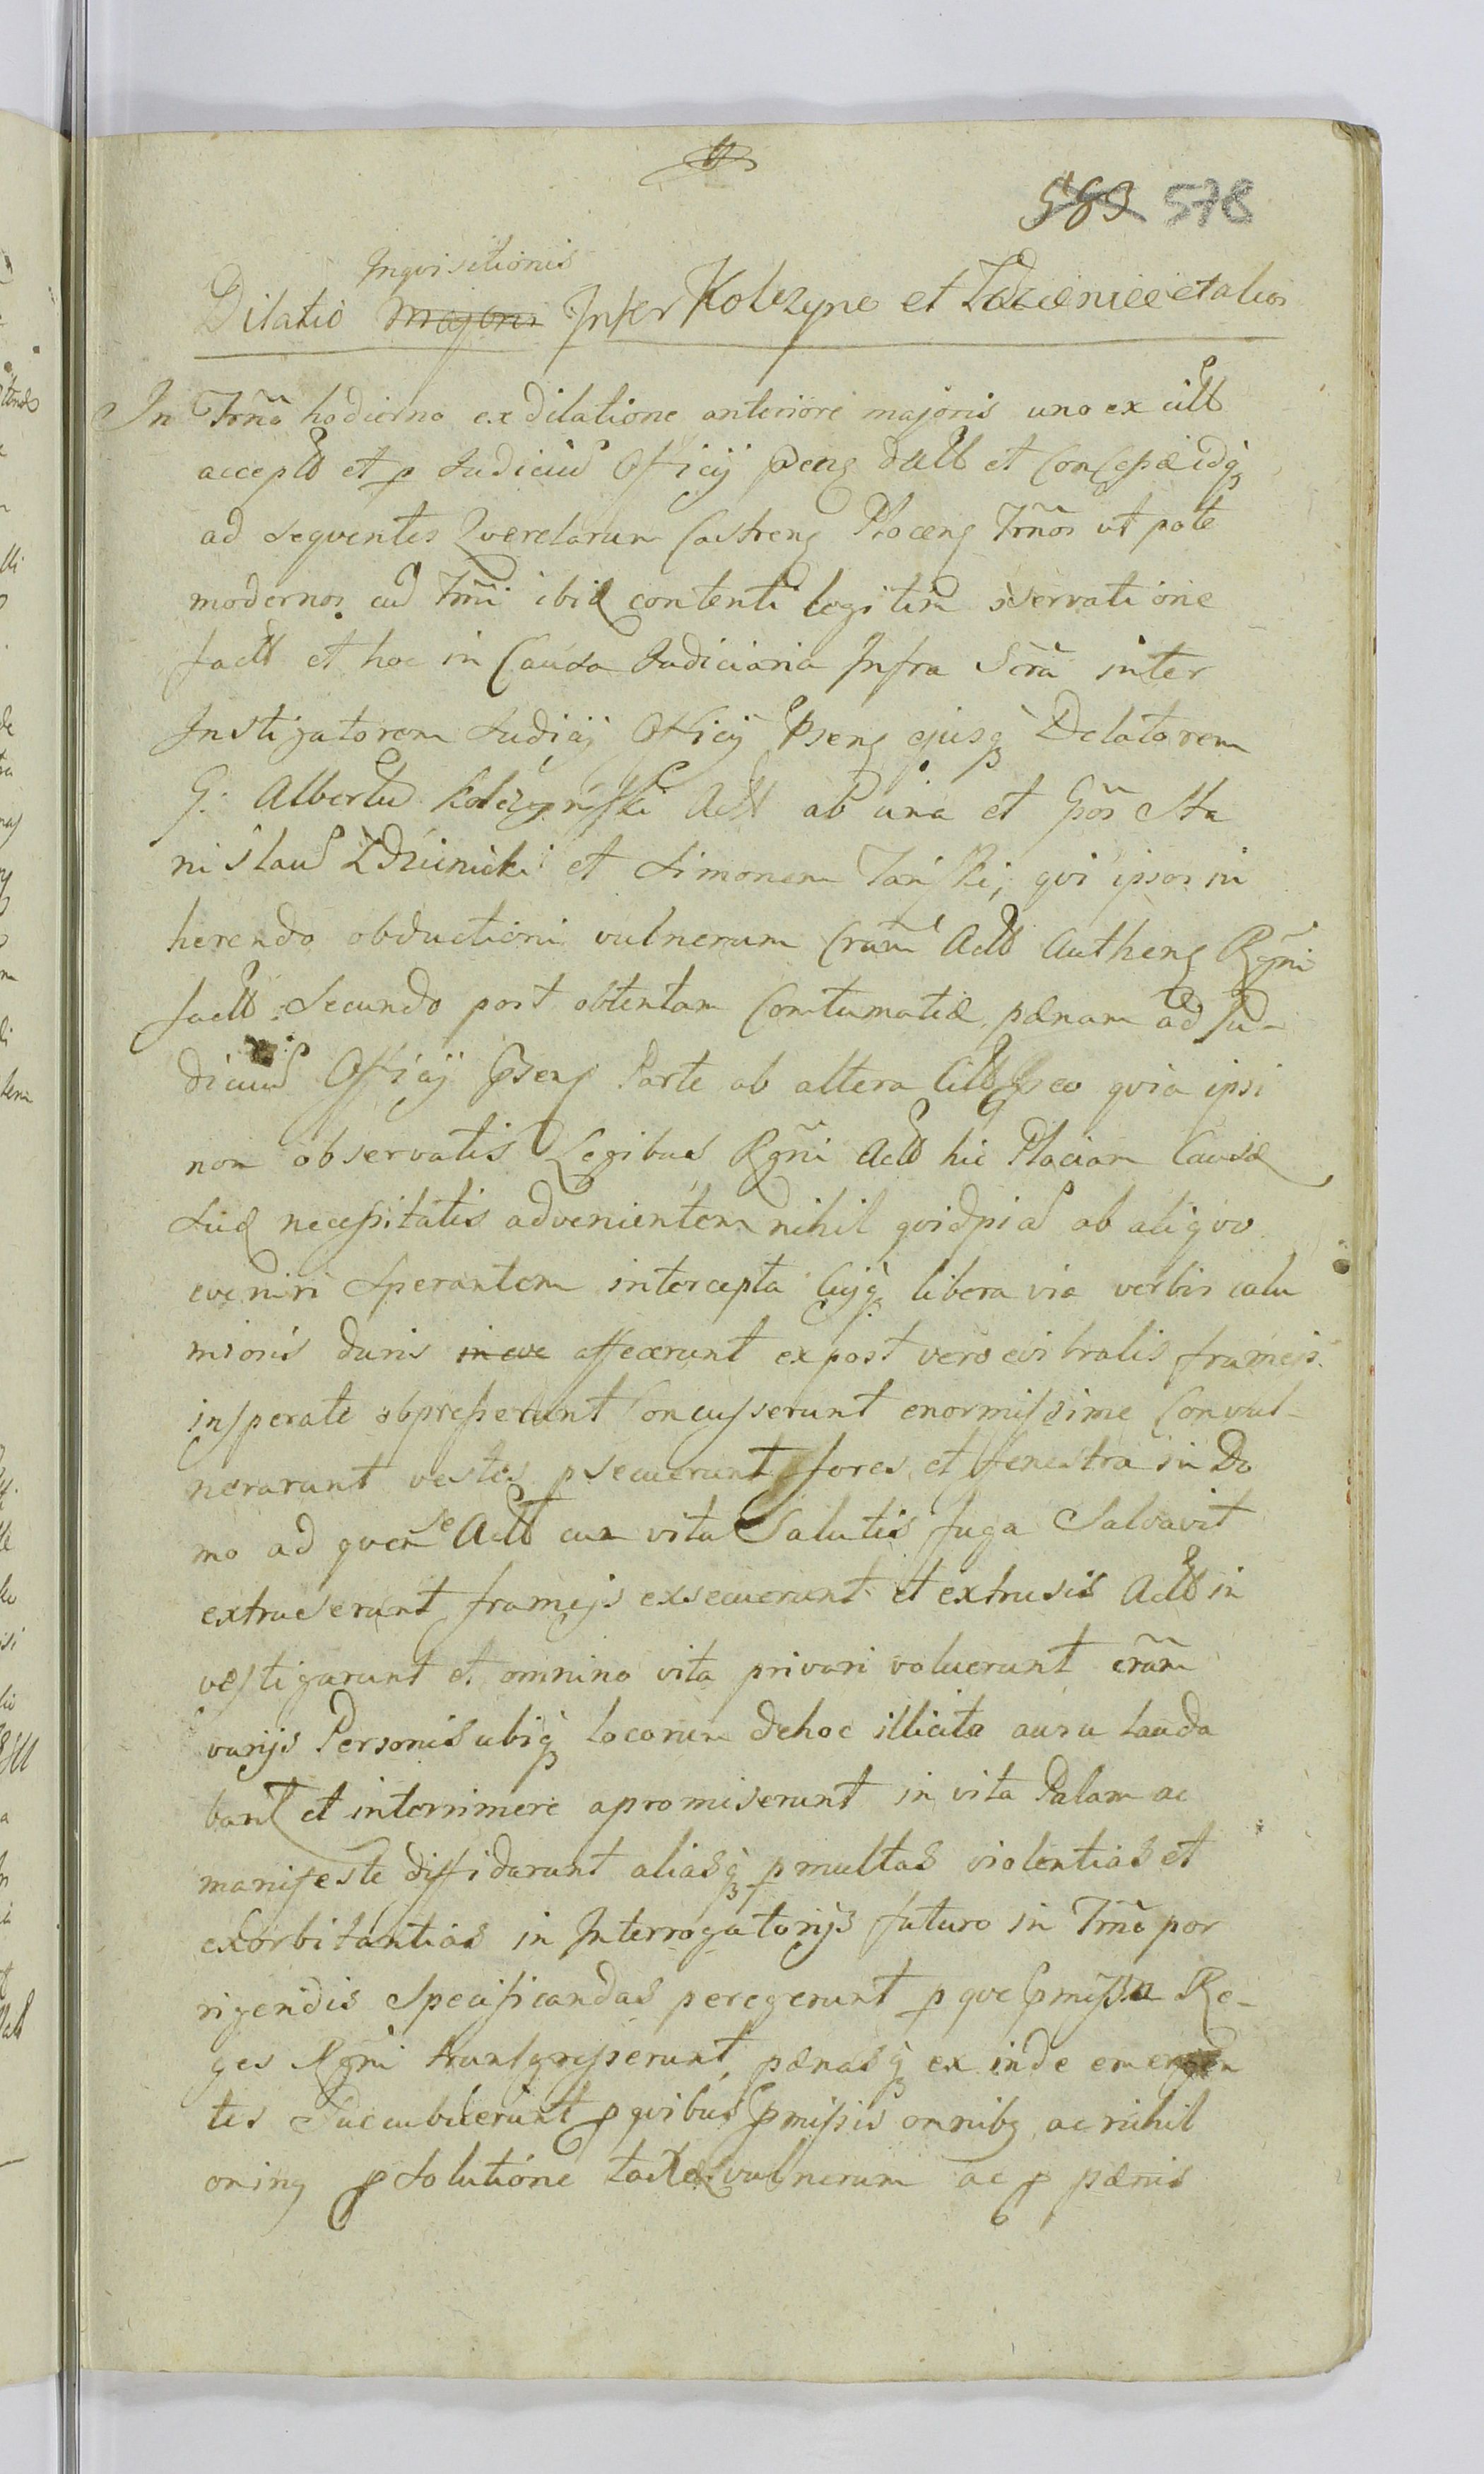 583 578
Inqvisitionis
Dilatio Majoris Inter Kolczyne et Zdzienice et alios
In Trno hodierno ex dilatione anteriore majoris una ex citt
acceptt et p Judiciu Officij Psens datt et Concessae idq
ad seqventes Qverelarum Castrens Plocens Trnos ut pote
modernos cu Trni ibid contenti legitim servatione
factt et hoc in Causa Judiciaria Infra Scra inter
Instigatorem Judicij Officij Psens ejusq Delatorem
G. Albertu Kolczynski Actt ab una et Gros Sta
nislau Zdzienicki et Simonem Tanski, qvi ipsos in
herendo obductioni vulnerum Cram Actt Authens Rgni
factt Secundo post obtentam Contumatiae paenam ad Ju-
diciu Officij Psens Parte ab altera Citt eo qvia ipsi
non observatis Legibus Rgni Actt hic Plociam Causae
Suae necessitatis advenientem nihil qvidpia ab aliqvo
eveniri Sperantem intercepta libera via verbis calu
mnioris duris in eve affecerunt ex post vero evibratis frameis
insperate obpresserunt Concusserunt enormissime Convul-
nerarunt vestes psecuerunt fores et fenestra in Do
mo ad qvem se Actt cum vita Salutis fuga Salvavit
extruserunt, frameis exsecuerunt et extrusis Actt in
vestigarunt et omnino vita privari voluerunt cram
varijs Personis ubiq locorum dehoc illicito ausu lauda
bant et interrimere apromiserunt in vita Palam ac
manifeste diffidarunt aliasq pmultas violentias et
exorbitantias in Interrogatorijs futuro in Trno por
rigendis Specificandas peregerunt p qve pmissa Re-
ges Rgni transgresserunt, paenasq ex inde emergen
tes Succubuerunt p qvibus pmissis omnibq ac nihil
oming p Solutione vulnerum ac p paenis